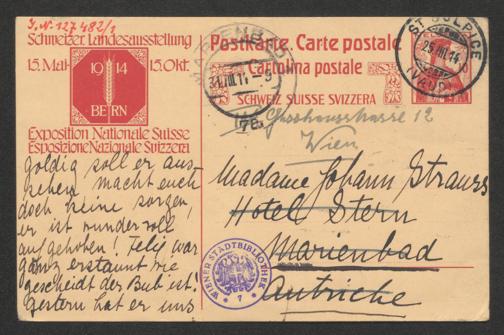 J.N. 127.482/1
Schweizer. Landesausstellung
15. Mai 15. Okt.
19 14
BERN
Exposition Nationale Suisse
Esposizione Nazionale Svizzera
Postkarte. Carte postale
Cartolina postale
SCHWEIZ SUISSE SVIZZERA
MARIENBAD
ST SULPICE
29.VII.14
(VAUD)
12
Wien
Madame Johann Strauss
Hotel Stern
Marienbad
Autriche
WIENER STADTBIBLIOTHEK
7
goldig soll er aus-
sehen macht euch
doch keine sorgen,
er ist wundervoll
aufgehoben! Felix war
ganz erstaunt wie
gescheidt der Bub ist!
Gestern hat er uns